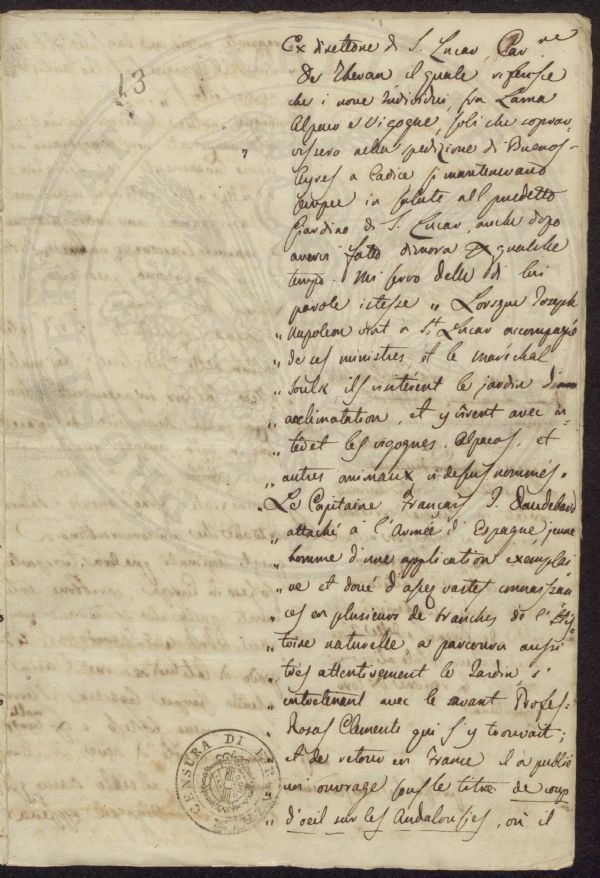 13
Ex direttore di S. Lucar, Cav.re
De Theran il quale riferisce
che i nove individui, fra Lama
Alpaco e Vigogne, soli che soprav-
vissero nella spedizione di Buenos-
Ayres a Cadice si mantenevano
sempre in salute nel predetto
Giardino di S. Lucar, anche dopo
avervi fatto dimora qualche
tempo. Mi servo delle di lui
parole istesse „ Lorsque Joseph
„ Napoleon vint a St. Lucar accompagné
„ de ses ministres et le maréchal
„ Soult ils visitèrent le jardin d'
„ acclimatation, et y virent avec in-
„ téret les vigognes, Alpacos, et
„ autres animaux ci dessus nommés.
„ Le Capitaine Français J. Daudebard
„ attaché à l'Armée d'Espagne, jeune
„ homme d'une application exemplai
„ re et doué d'assez vastes connaissan
„ ces en plusieurs de branches de l'His-
„ toire naturelle, a parcouru aussi
„ très attentivement le Jardin, s'
„ entretenant avec le savant Profes-
„ Rosas Clemente qui s'y trouvait;
„ et de retour en France il a publié
„ un ouvrage sous le titre de coup
„ d'oeil sur les Andalousies, où il
CENSURA DI